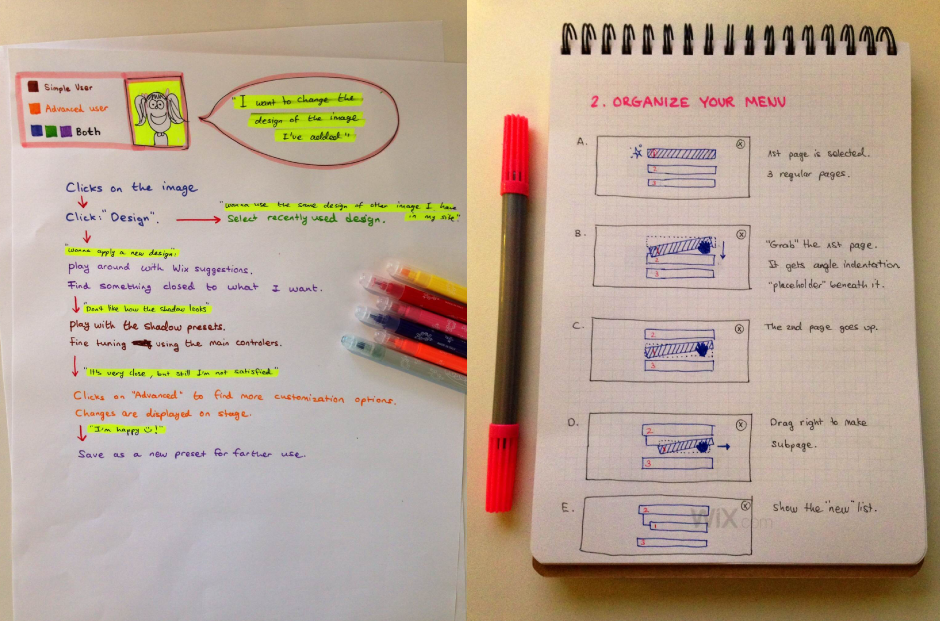 Simple User
Advanced user
Both
"I want to change the
design of the image
I've added"
Clicks on the image
Click: "Design".
"wanna use the same design of other image I have
in my site"
Select recently used design.
"wanna apply a new design"
play around with Wix suggestions.
Find something closed to what I want.
"Don't like how the shadow looks"
play with the shadow presets.
fine tuning using the main controlers.
"It's very close, but still I'm not satisfied"
Clicks on "Advanced" to find more customization options.
Changes are displayed on stage.
"I'm happy ☺!"
Save as a new preset for farther use.
2. ORGANIZE YOUR MENU
A.
X
1
2
3
1st page is selected.
3 regular pages.
B.
X
2
3
"Grab" the 1st page.
It gets angle indentation
"placeholder" beneath it.
C.
X
2
3
The 2nd page goes up.
D.
X
2
3
Drag right to make
Subpage.
E.
X
2
1
3
Show the "new" list.
WiX.com